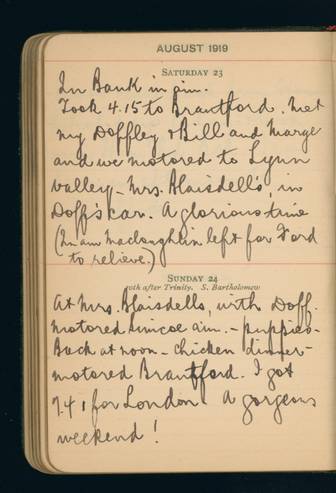 AUGUST 1919
SATURDAY 23
In Bank in a.m.
Took 4.15 to Brantford. Met
my Doffley & Bill and Marge
and we motored to Lynn
valley - Mrs. Blaisdell's, in
Doff's car. A glorious time
(In a.m. Maclaughlin left for Ford
to relieve.)
SUNDAY 24
10th after Trinity. S. Bartholomew
At Mrs. Blaisdells, with Doff.
Motored Simcoe a.m. - puppies -
Back at noon - chicken dinner -
motored Brantford. I got
7.41 for London. A gorgeous
weekend!